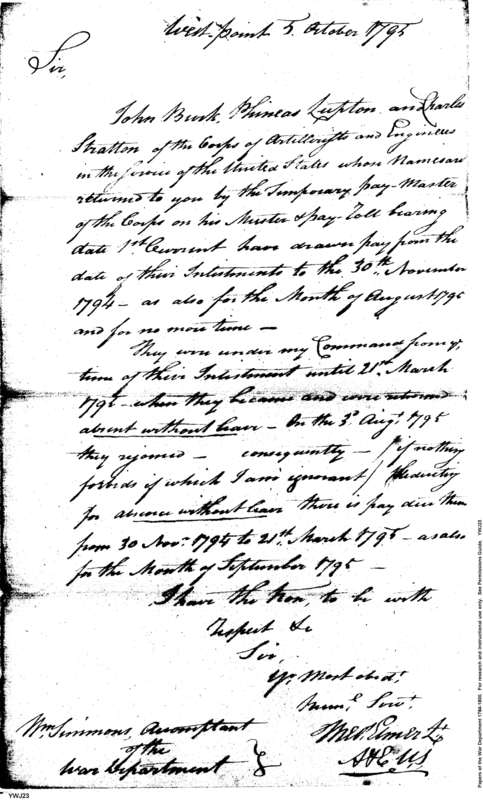 West-point 5. October 1795
Sir,
John Burk, Phineas Lupton and Charles
Stratton of the Corps of Artillerists and Engineers
in the Service of the United States whose Names are
returned to you by the Temporary pay-Master
of the Corps on his Muster & pay-Roll bearing
date 1st Current have drawn pay from the
date of their Inlistments to the 30th. November
1794 – as also for the Month of August 1795
and for no more time –
They were under my Command from ye.
time of their Inlistment until 21st. March
1795 – when they became and were returned
absent without leave – On the 3d. Augt. 1795
they rejoined – consequently – (if nothing
forbids of which I am ignorant)
for absence without leave there is pay due them
from 30 Novr. 1794 to 21st. March 1795 – as also
for the Month of September 1795 –
I have the hon, to be with
respect &c
Sir
Yr. Most obedt.
Humle. Servt.
Wm Simmons, Accomptant
of the
War Department
Lt.
A&EUS
YWJ23
Papers of the War Department 1784-1800. For research and instructional use only. See Permissions Guide. YWJ23